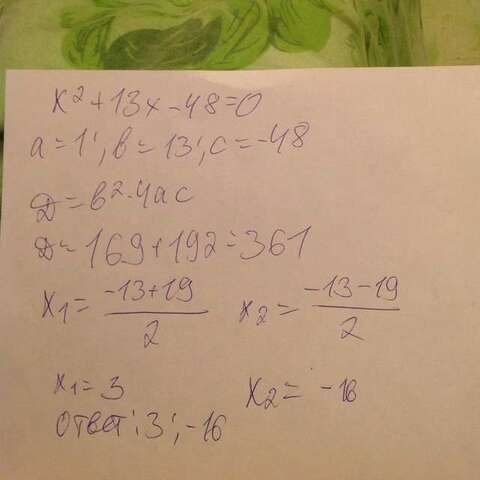 x²+13x-48=0
a=1; в=13; c=-48
Д=в²-4ac
Д=169+192=361
x₁=(-13+19)/2   x₂=(-13-19)/2
x₁=3   x₂=-16
Ответ: 3; -16